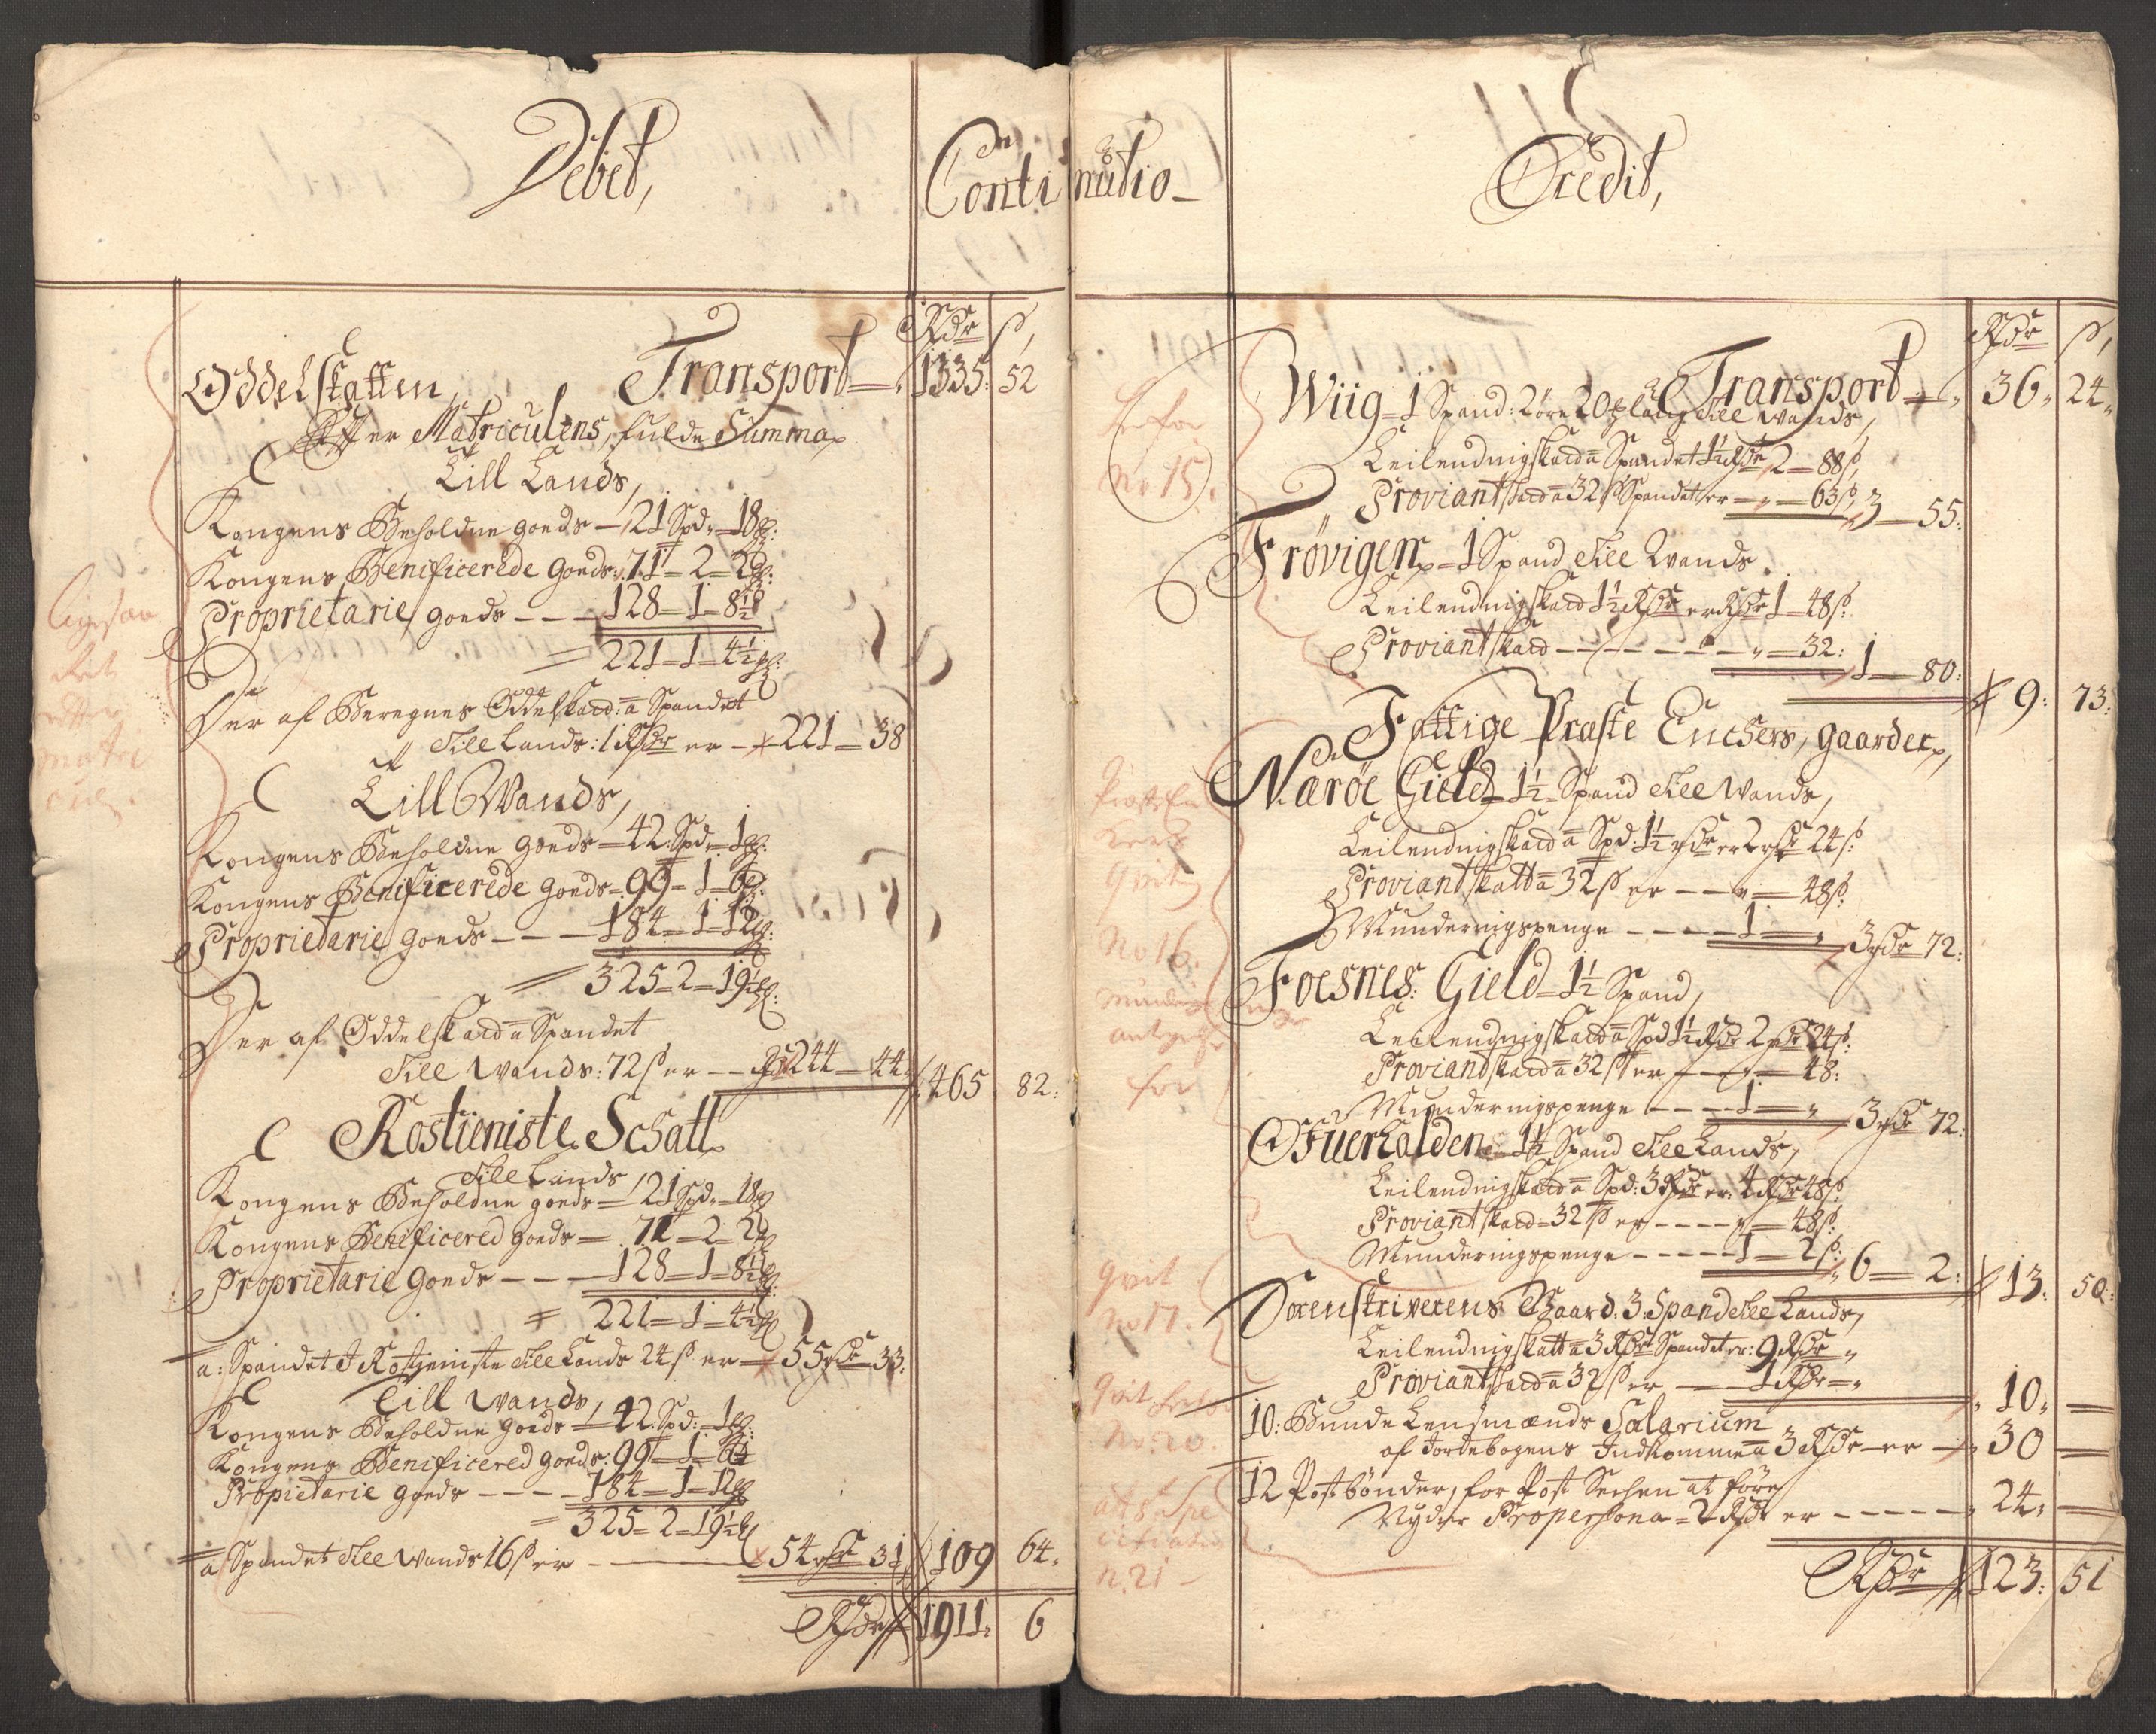 Debet,
Continutio
Rdr ß,
Transport 1335: 52
Oddelskatten
Effter Matriculens, fulde Summa
Till Lands,
Kongens Beholdne goeds 21 Spd. 18
Kongens Benificerede Goeds: 71 - 2 - 2
Proprietarie goeds - - - 128 - 1 - 8½
221 - 1 - 4½
Der af Beregnes Oddelskatt: a Spandet
Till Lands: 1 Rdr er - 221 - 38
Till Wands,
Kongens Beholdne goeds - 42: Spd: 1
Kongens Benificerede goeds - 99 - 1 - 6
Proprietarie goeds - - - 184 - 1 - 12
325 - 2 - 19½
Der af Oddelskatt a Spandet
Till Wands: 72 ß er - - Rdr 244 - 44
465 82:
Rostieniste Schatt
Till Lands
Kongens Beholdne goeds - 21 Spd. 18
Kongens Benificered goeds - 71 - 2 - 2
Proprietarie Goeds - - - 128 - 1 - 8½
221 - 1 - 4½
a: Spandet I Rostieniste Till Lands 24 ß er - 55 rdr 33:
Till Wands,
Kongens Beholdne goeds - 42: Spd: 1
Kongens Benificered goeds: 99 - 1 - 6
Propietarie goeds - - - 184 - 1 - 12
325 - 2 - 19½
a Spandet Till Wands 16 ß er - 54 rdr 31 109 64.
Rdr 1911. 6
Credit,
Rdr ß,
Transport 36. 24.
Wiig - 1 Spand: 2 øre 20 Till Wands,
No 15.
Leilendingskatt a Spandet 1½ Rdr 2 - 88 ß
Proviantskatt a 32 ß Spandet er - „ - 63 ß, 3 - 55:
Frøvigen - 1 Spand Till Wands
Leilendingskatt 1½ Rdr er Rdr 1 - 48 ß.
Proviantskatt - - - - „ - 32: 1 - 80:
9: 73:
Fattige Præste Enchers, gaarder,
Nærøe Gield - 1½ Spand Till Wands,
Leilendingskatt a Spd: 1½ rdr er 2 rdr 24 ß:
Proviantskatt a 32 ß er - - „ - 48 ß:
Munderingspenge - - - 1 - „ 3 rdr 72:
No 16.
Foesnes: Gield - 1½ Spand,
Leilendingskatt a Spd 1½ Rdr 2 rdr 24 ß:
Proviantskatt a 32 ß er - - „ - 48:
for
Munderingspenge - - - 1 - „ 3 rdr 72:
Ofuerhalden - 1½ Spand Till Lands,
Leilendingskatt a Spd: 3 Rdr er: 4 Rdr 48 ß:
Proviantskatt - 32 ß er - - - „ - 48 ß:
Munderingspenge - - - - 1 - 2 ß: 6 - 2: 13: 50:
qvit
No 17.
Sorenskriverens Gaard: 3 Spand Till Lands,
Leilendingskatt a 3 Rdr Spandet er: 9 Rdr „
Proviantskatt a 32 ß er - 1 Rdr - „ 10. -
qvit
No: 20.
10: Bunde Lensmænds Salarium
af Jordebogens Indkomme a 3 Rdr - er - 30 -
12 Postbønder, for Post Sechen at føre
Nyder Propersona - 2 Rdr er - - - - - 24. -
n. 21
Rdr 123: 51